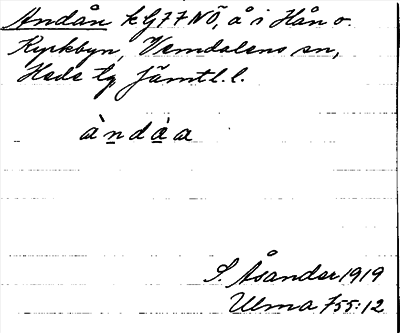 Andån k G77NÖ, å i Hån o
Kyrkbyn, Vemdalens sn,
Hede tg Jämtl. l.
àndàa
S. Åsander 1919
Ulma 755:12